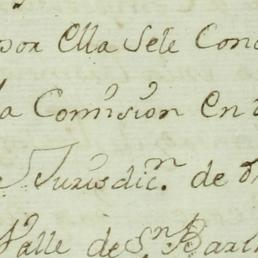 por Ella Sele Conc
la Comision En
Jurisdic.n de
Valle de S.n Bart